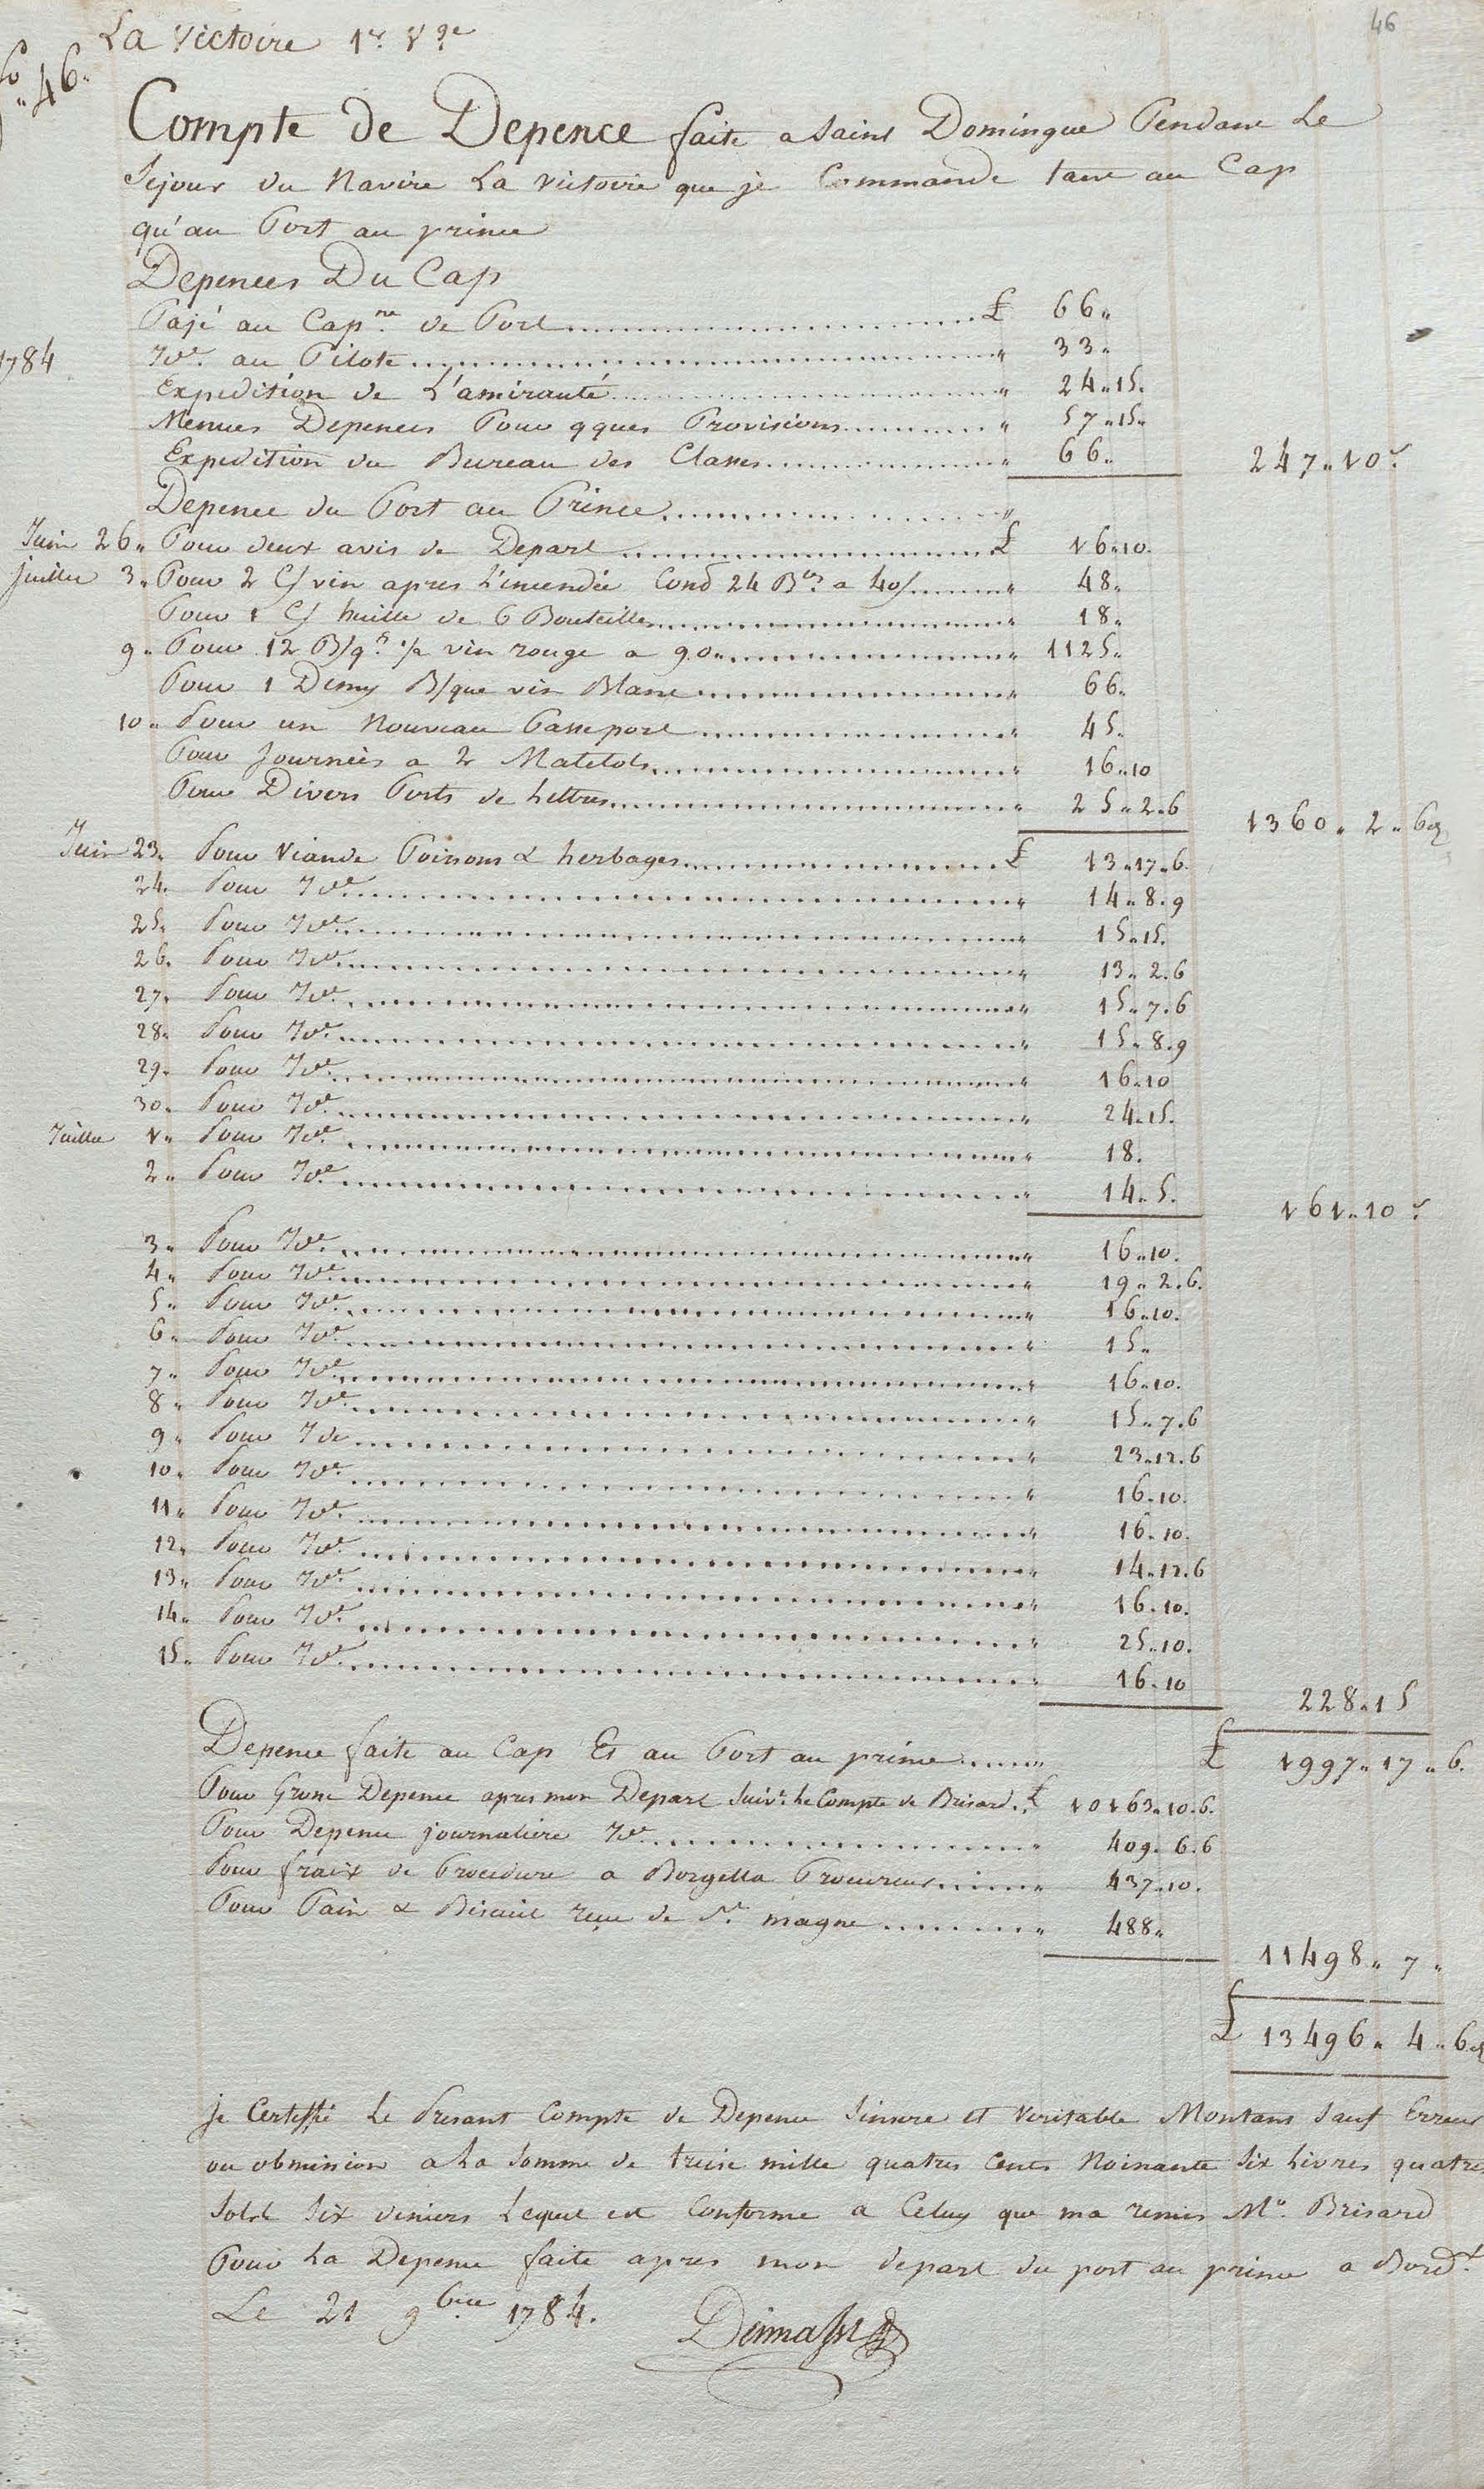 46
La Victoire 1er Vge
fo. 46.
Compte de Depence faite a Saint Domingue Pendant Le
Sejour du Navire La Victoire que je Commande tant au Cap
qu'au Port au prince
Depences Du Cap
Pajé au Capne de Port £ 66 "
1784 Ide au Pilote " 33 "
Expedition de L'amirauté " 24 " 15.
Menues Depences Pour qques Provisions " 57 " 15 "
Expedition du Bureau des Classes " 66 " 247 " 10 s
Depence du Port au Prince "
Juin 26 " Pour deux avis de Depart £ 16 " 10.
Juillet 3 " Pour 2 C/ vin apres L'incendie Cond 24 Bles a 40/ " 48 "
Pour 1 C/ huille de 6 Bouteilles " 18 "
9 " Pour 12 B/qs 1/2 vin rouge a 90 " " 1125 "
Pour 1 Demy B/que vin Blanc " 66 "
10 " Pour un Nouveau Passeport " 45 "
Pour Journées a 2 Matelots " 16 " 10
Pour Divers Ports de Lettres " 25 " 2 " 6 1360 " 2 " 6 d
Juin 23 " Pour Viande Poissons & herbages £ 13 " 17 " 6.
24. Pour Ide " 14 " 8 . 9
25 " Pour Ide " 15 " 15.
26 . Pour Ide " 13 " 2 . 6
27 . Pour Ide " 15 " 7 . 6
28 " Pour Ide " 15 " 8 . 9
29 . Pour Ide " 16 " 10
30 . Pour Ide " 24 " 15.
Juillet 1 " Pour Ide " 18.
2 " Pour Ide " 14 " 5. 161 " 10 s
3 " Pour Ide " 16 " 10.
4 " Pour Ide " 19 " 2 . 6.
5 " Pour Ide " 16 " 10.
6 " Pour Ide " 15 "
7 " Pour Ide " 16 " 10.
8 " Pour Ide " 15 " 7 . 6
9 " Pour Ide " 23 " 12 . 6
10 " Pour Ide " 16 " 10.
11 " Pour Ide " 16 . 10.
12 " Pour Ide " 14 " 12 . 6
13 " Pour Ide " 16 . 10.
14 " Pour Ide " 25 " 10.
15 " Pour Ide " 16 . 10 228 " 15
Depence faite au Cap Et au Port au prince " £ 1997 " 17 " 6.
Pour Grosse Depence apres mon Depart Suivt Le Compte de Brisard £ 10163 " 10 . 6.
Pour Depence journaliere Ide " 409 . 6 . 6
Pour fraix de Procedure a Borgella Procureur " 437 " 10.
Pour Pain & Biscuit reçue de St magne " 488 " 11498 " 7 "
£ 13496 " 4 " 6 d
je Certiffié Le Presant Compte de Depence Sincere et Veritable Montans Sauf Erreur
ou obmission a La Somme de treise mille quatres Cents Noinante Six Livres quatre
Solds Six deniers Lequel est Conforme a Celuy que ma remis Mr. Brisard
Pour La Depence faite apres mon depart du port au prince a Bordx
Le 21 9bre 1784.